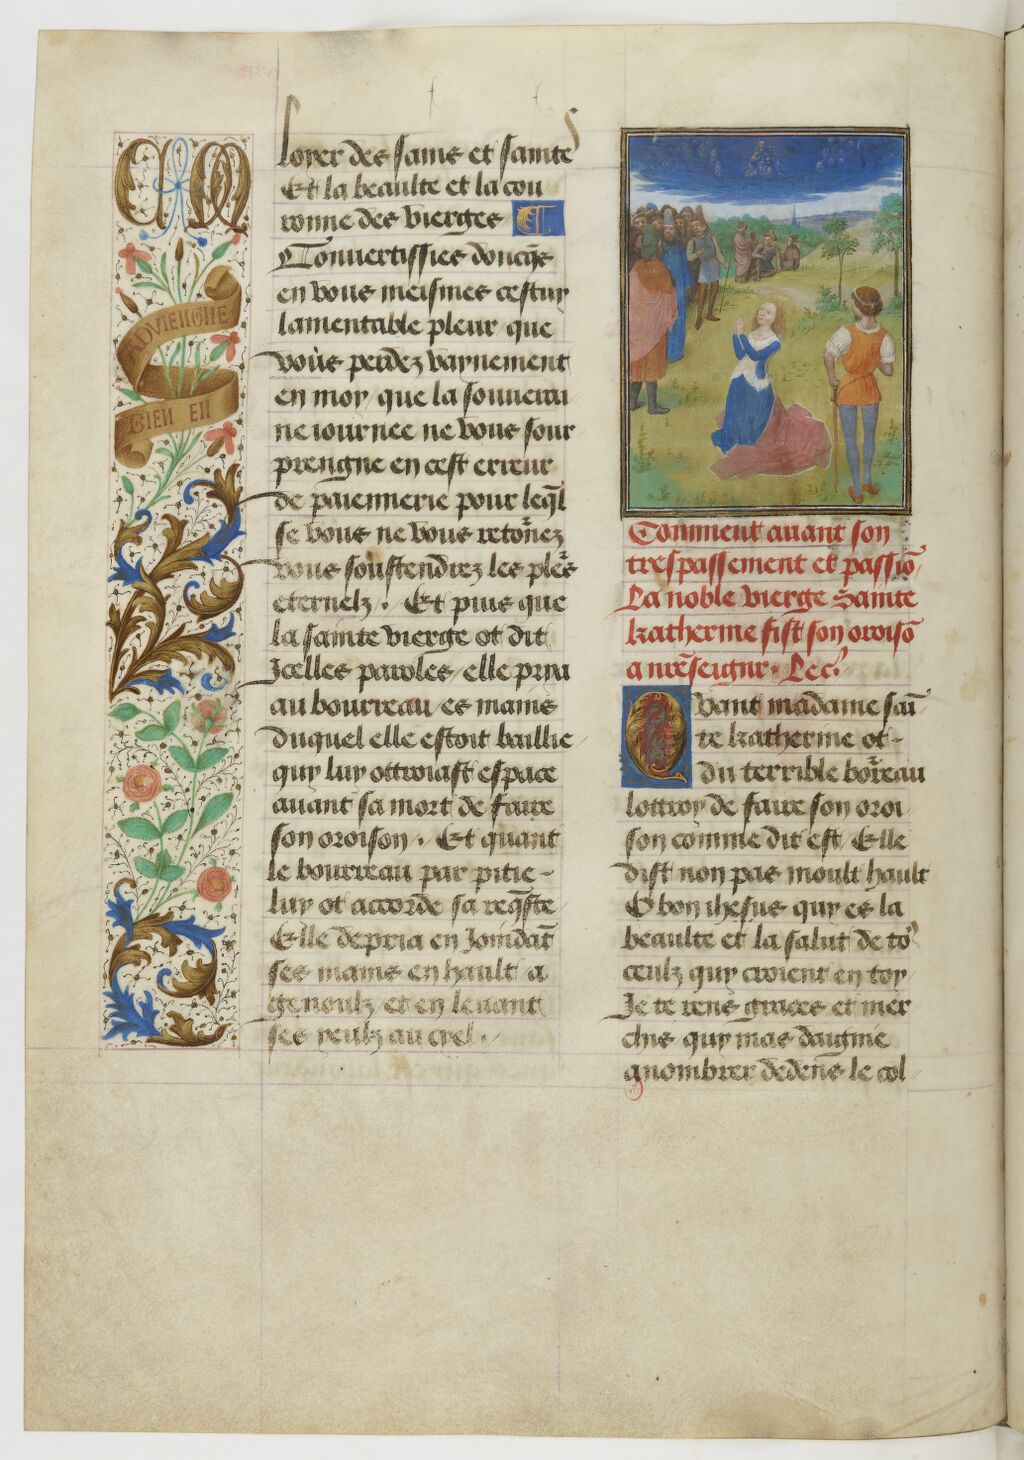 C M
ADVIENGNE
BIEN EN
loyer des sains et saintes
Et la beaulte et la cou
ronne des vierges
Convertissies doncq̄s
en vous meismes cestuy
lamentable pleur que
vous perdez vaynement
en moy que la souverai
ne iournee ne vous sour
prengne en cest erreur
de paiennerie pour leq̄l
se vous ne vous retōnez
vous soustendrez les plēs
eternelz. Et puis que
la sainte vierge ot dit
Icelles paroles elle pria
au bourreau es mains
duquel elle estoit baillie
quy luy ottroiast espace
avant sa mort de faire
son oroison. Et quant
le bourreau par pitie -
luy ot accorde sa req̄ste
Elle depria en Joindāt
ses mains en hault a
genoulz et en levant
ses yeulz au cyel.
Comment avant son
trespassement et passiō
La noble vierge Sainte
katherine fist son oroisō
a nr̄e seignr. Lec̄.
Quant madame sai
te katherine ot -
du terrible bōreau
lottroy de faire son oroi
son comme dit est Elle
dist non pas moult hault
O bon ihesus quy es la
beaulte et la salut de to9
ceulz quy croient en toy
Je te rens graces et mer
chis quy mas daignie
anombrer dedens le col